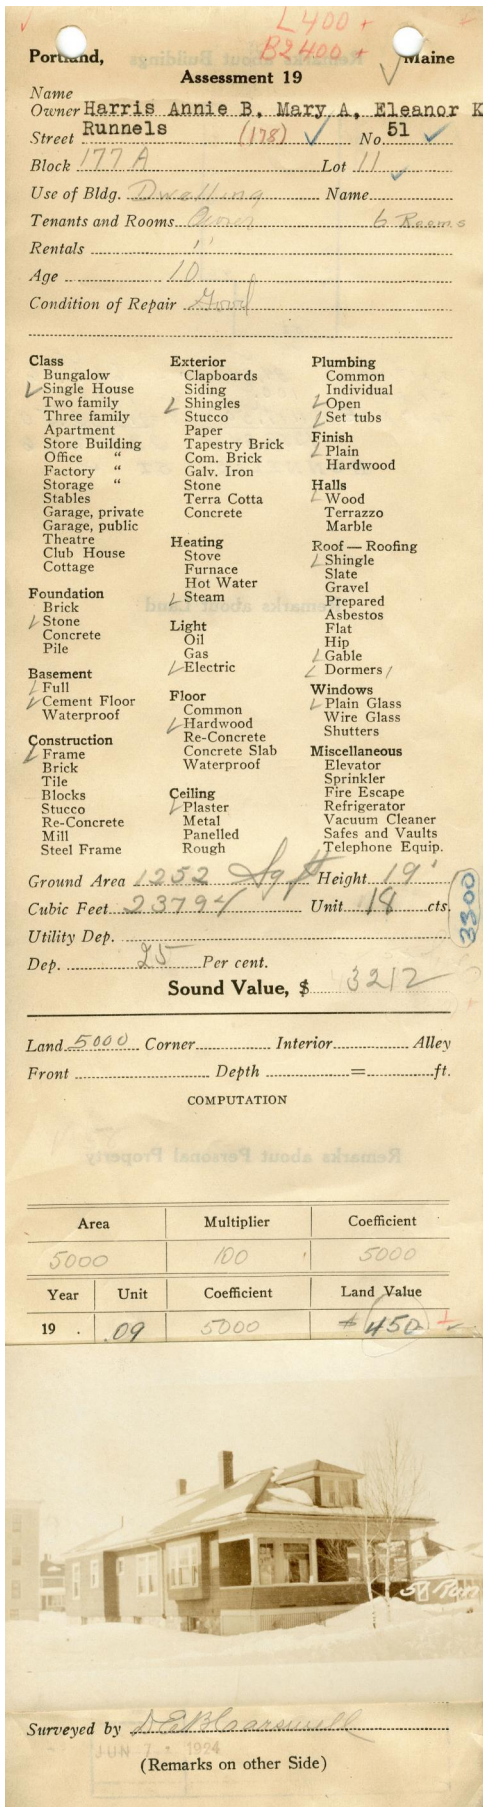 L400 +
B2400 +
Portland, Maine
Assessment 19
Name
Owner Harris Annie B. Mary A. Eleanor K
Street Runnels (178) No. 51
Block 177 A Lot 11
Use of Bldg. Dwelling Name
Tenants and Rooms Owner 6 Rooms
Rentals "
Age 10
Condition of Repair Good
Class
Bungalow
✓ Single House
Two family
Three family
Apartment
Store Building
Office "
Factory "
Storage "
Stables
Garage, private
Garage, public
Theatre
Club House
Cottage
Foundation
Brick
✓ Stone
Concrete
Pile
Basement
✓ Full
✓ Cement Floor
Waterproof
Construction
✓ Frame
Brick
Tile
Blocks
Stucco
Re-Concrete
Mill
Steel Frame
Exterior
Clapboards
Siding
✓ Shingles
Stucco
Paper
Tapestry Brick
Com. Brick
Galv. Iron
Stone
Terra Cotta
Concrete
Heating
Stove
Furnace
Hot Water
✓ Steam
Light
Oil
Gas
✓ Electric
Floor
Common
✓ Hardwood
Re-Concrete
Concrete Slab
Waterproof
Ceiling
✓ Plaster
Metal
Panelled
Rough
Plumbing
Common
Individual
✓ Open
✓ Set tubs
Finish
✓ Plain
Hardwood
Halls
✓ Wood
Terrazzo
Marble
Roof — Roofing
✓ Shingle
Slate
Gravel
Prepared
Asbestos
Flat
Hip
✓ Gable
✓ Dormers /
Windows
✓ Plain Glass
Wire Glass
Shutters
Miscellaneous
Elevator
Sprinkler
Fire Escape
Refrigerator
Vacuum Cleaner
Safes and Vaults
Telephone Equip.
Ground Area 1252 Sq ft Height 19'
Cubic Feet 23794 Unit 18 cts.
3300
Utility Dep.
Dep. 25 Per cent.
Sound Value, $ 3212
Land 5000 Corner Interior Alley
Front Depth = ft.
COMPUTATION
Remarks about Personal Property
Area Multiplier Coefficient
5000 100 5000
Year Unit Coefficient Land Value
19 .09 5000 $450
Surveyed by
JUN 7 1924
(Remarks on other Side)